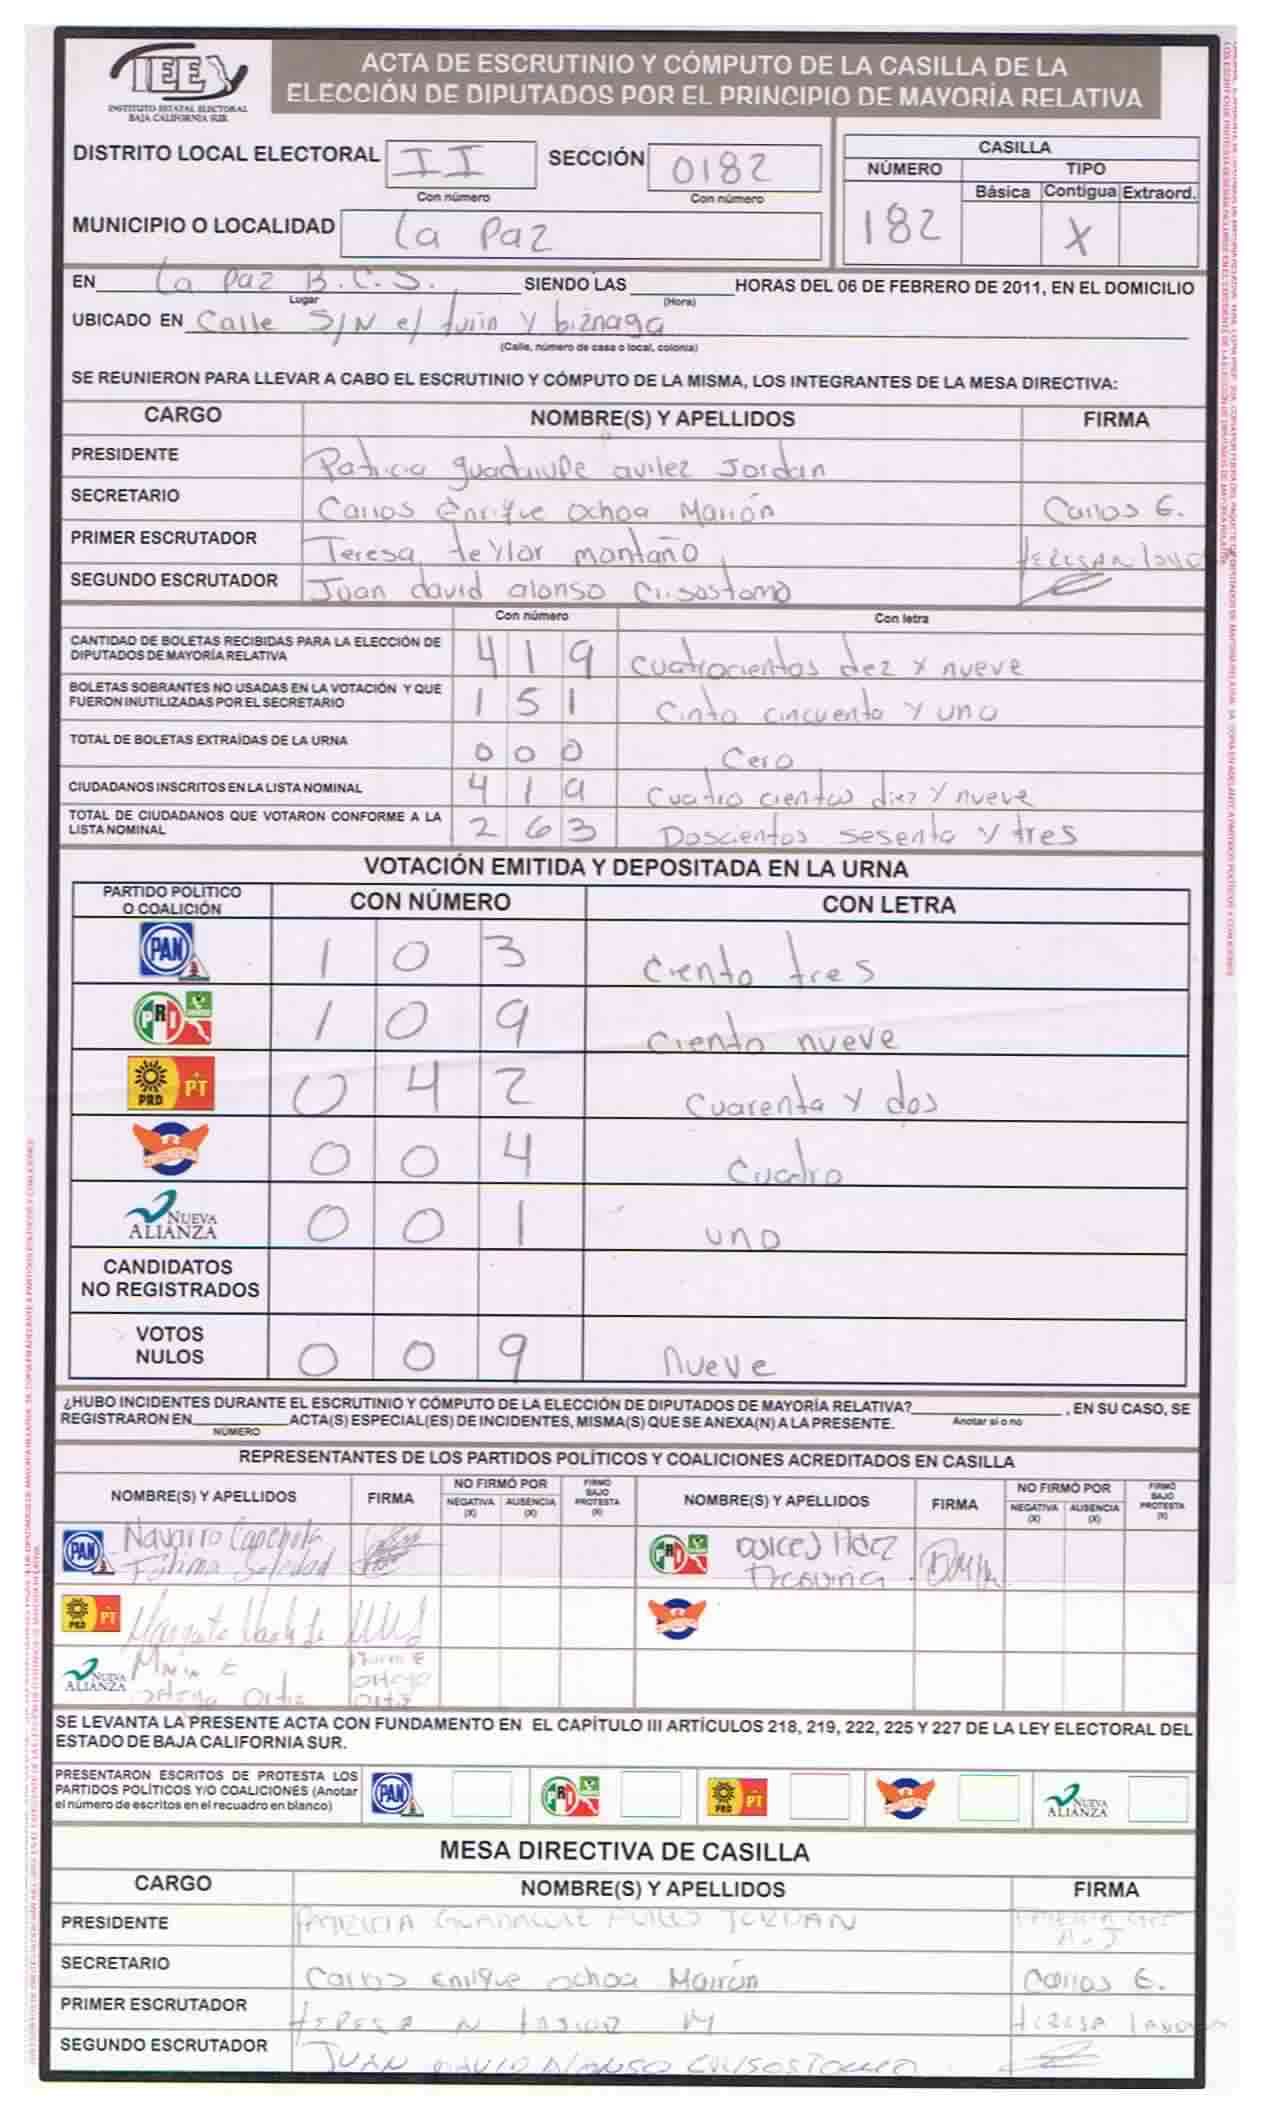 IEE
INSTITUTO ESTATAL ELECTORAL
BAJA CALIFORNIA SUR
ACTA DE ESCRUTINIO Y CÓMPUTO DE LA CASILLA DE LA
ELECCIÓN DE DIPUTADOS POR EL PRINCIPIO DE MAYORÍA RELATIVA
DISTRITO LOCAL ELECTORAL II SECCIÓN 0182
Con número Con número
MUNICIPIO O LOCALIDAD La Paz
CASILLA
NÚMERO TIPO
Básica Contigua Extraord.
182 X
EN La Paz B.C.S. SIENDO LAS HORAS DEL 06 DE FEBRERO DE 2011, EN EL DOMICILIO
Lugar (Hora)
UBICADO EN Calle S/N e/ turin y biznaga
(Calle, número de casa o local, colonia)
SE REUNIERON PARA LLEVAR A CABO EL ESCRUTINIO Y CÓMPUTO DE LA MISMA, LOS INTEGRANTES DE LA MESA DIRECTIVA:
CARGO NOMBRE(S) Y APELLIDOS FIRMA
PRESIDENTE Patricia guadalupe avilez Jordan
SECRETARIO Carlos Enrique Ochoa Marrón Carlos E.
PRIMER ESCRUTADOR Teresa teylor montaño
SEGUNDO ESCRUTADOR Juan david alonso Crisostomo
Con número Con letra
CANTIDAD DE BOLETAS RECIBIDAS PARA LA ELECCIÓN DE
DIPUTADOS DE MAYORÍA RELATIVA 419 cuatrocientos diez y nueve
BOLETAS SOBRANTES NO USADAS EN LA VOTACIÓN Y QUE
FUERON INUTILIZADAS POR EL SECRETARIO 151 Cinto cincuenta y uno
TOTAL DE BOLETAS EXTRAÍDAS DE LA URNA 000 Cero
CIUDADANOS INSCRITOS EN LA LISTA NOMINAL 419 Cuatro cientos diez y nueve
TOTAL DE CIUDADANOS QUE VOTARON CONFORME A LA
LISTA NOMINAL 263 Doscientos sesenta y tres
VOTACIÓN EMITIDA Y DEPOSITADA EN LA URNA
PARTIDO POLÍTICO
O COALICIÓN CON NÚMERO CON LETRA
PAN 103 Ciento tres
PRI 109 Ciento nueve
PRD PT 042 Cuarenta y dos
004 Cuatro
NUEVA
ALIANZA 001 uno
CANDIDATOS
NO REGISTRADOS
VOTOS
NULOS 009 nueve
¿HUBO INCIDENTES DURANTE EL ESCRUTINIO Y CÓMPUTO DE LA ELECCIÓN DE DIPUTADOS DE MAYORÍA RELATIVA? , EN SU CASO, SE
Anotar si o no
REGISTRARON EN ACTA(S) ESPECIAL(ES) DE INCIDENTES, MISMA(S) QUE SE ANEXA(N) A LA PRESENTE.
NÚMERO
REPRESENTANTES DE LOS PARTIDOS POLÍTICOS Y COALICIONES ACREDITADOS EN CASILLA
NOMBRE(S) Y APELLIDOS FIRMA NO FIRMÓ POR NEGATIVA (X) AUSENCIA (X) FIRMÓ BAJO PROTESTA (X) NOMBRE(S) Y APELLIDOS FIRMA NO FIRMÓ POR NEGATIVA (X) AUSENCIA (X) FIRMÓ BAJO PROTESTA (X)
PAN Navarro
Soledad
PRI
PRD PT
NUEVA
ALIANZA
Ortiz
SE LEVANTA LA PRESENTE ACTA CON FUNDAMENTO EN EL CAPÍTULO III ARTÍCULOS 218, 219, 222, 225 Y 227 DE LA LEY ELECTORAL DEL
ESTADO DE BAJA CALIFORNIA SUR.
PRESENTARON ESCRITOS DE PROTESTA LOS
PARTIDOS POLÍTICOS Y/O COALICIONES (Anotar
el número de escritos en el recuadro en blanco)
PAN PRI PRD PT NUEVA ALIANZA
MESA DIRECTIVA DE CASILLA
CARGO NOMBRE(S) Y APELLIDOS FIRMA
PRESIDENTE PATRICIA GUADALUPE JORDAN
SECRETARIO Carlos Enrique Ochoa Marrón Carlos E.
PRIMER ESCRUTADOR
SEGUNDO ESCRUTADOR JUAN DAVID ALONSO CRISOSTOMO